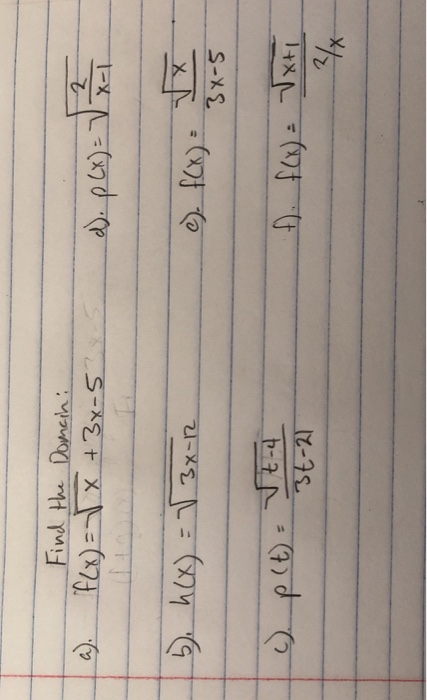 Find the Domain:
a). f(x) = √x + 3x-5
b). h(x) = √3x-12
c). p(t) = √t-4 / 3t-21
d). p(x) = √2/x-1
e). f(x) = √x / 3x-5
f). f(x) = √x+1 / 2/x